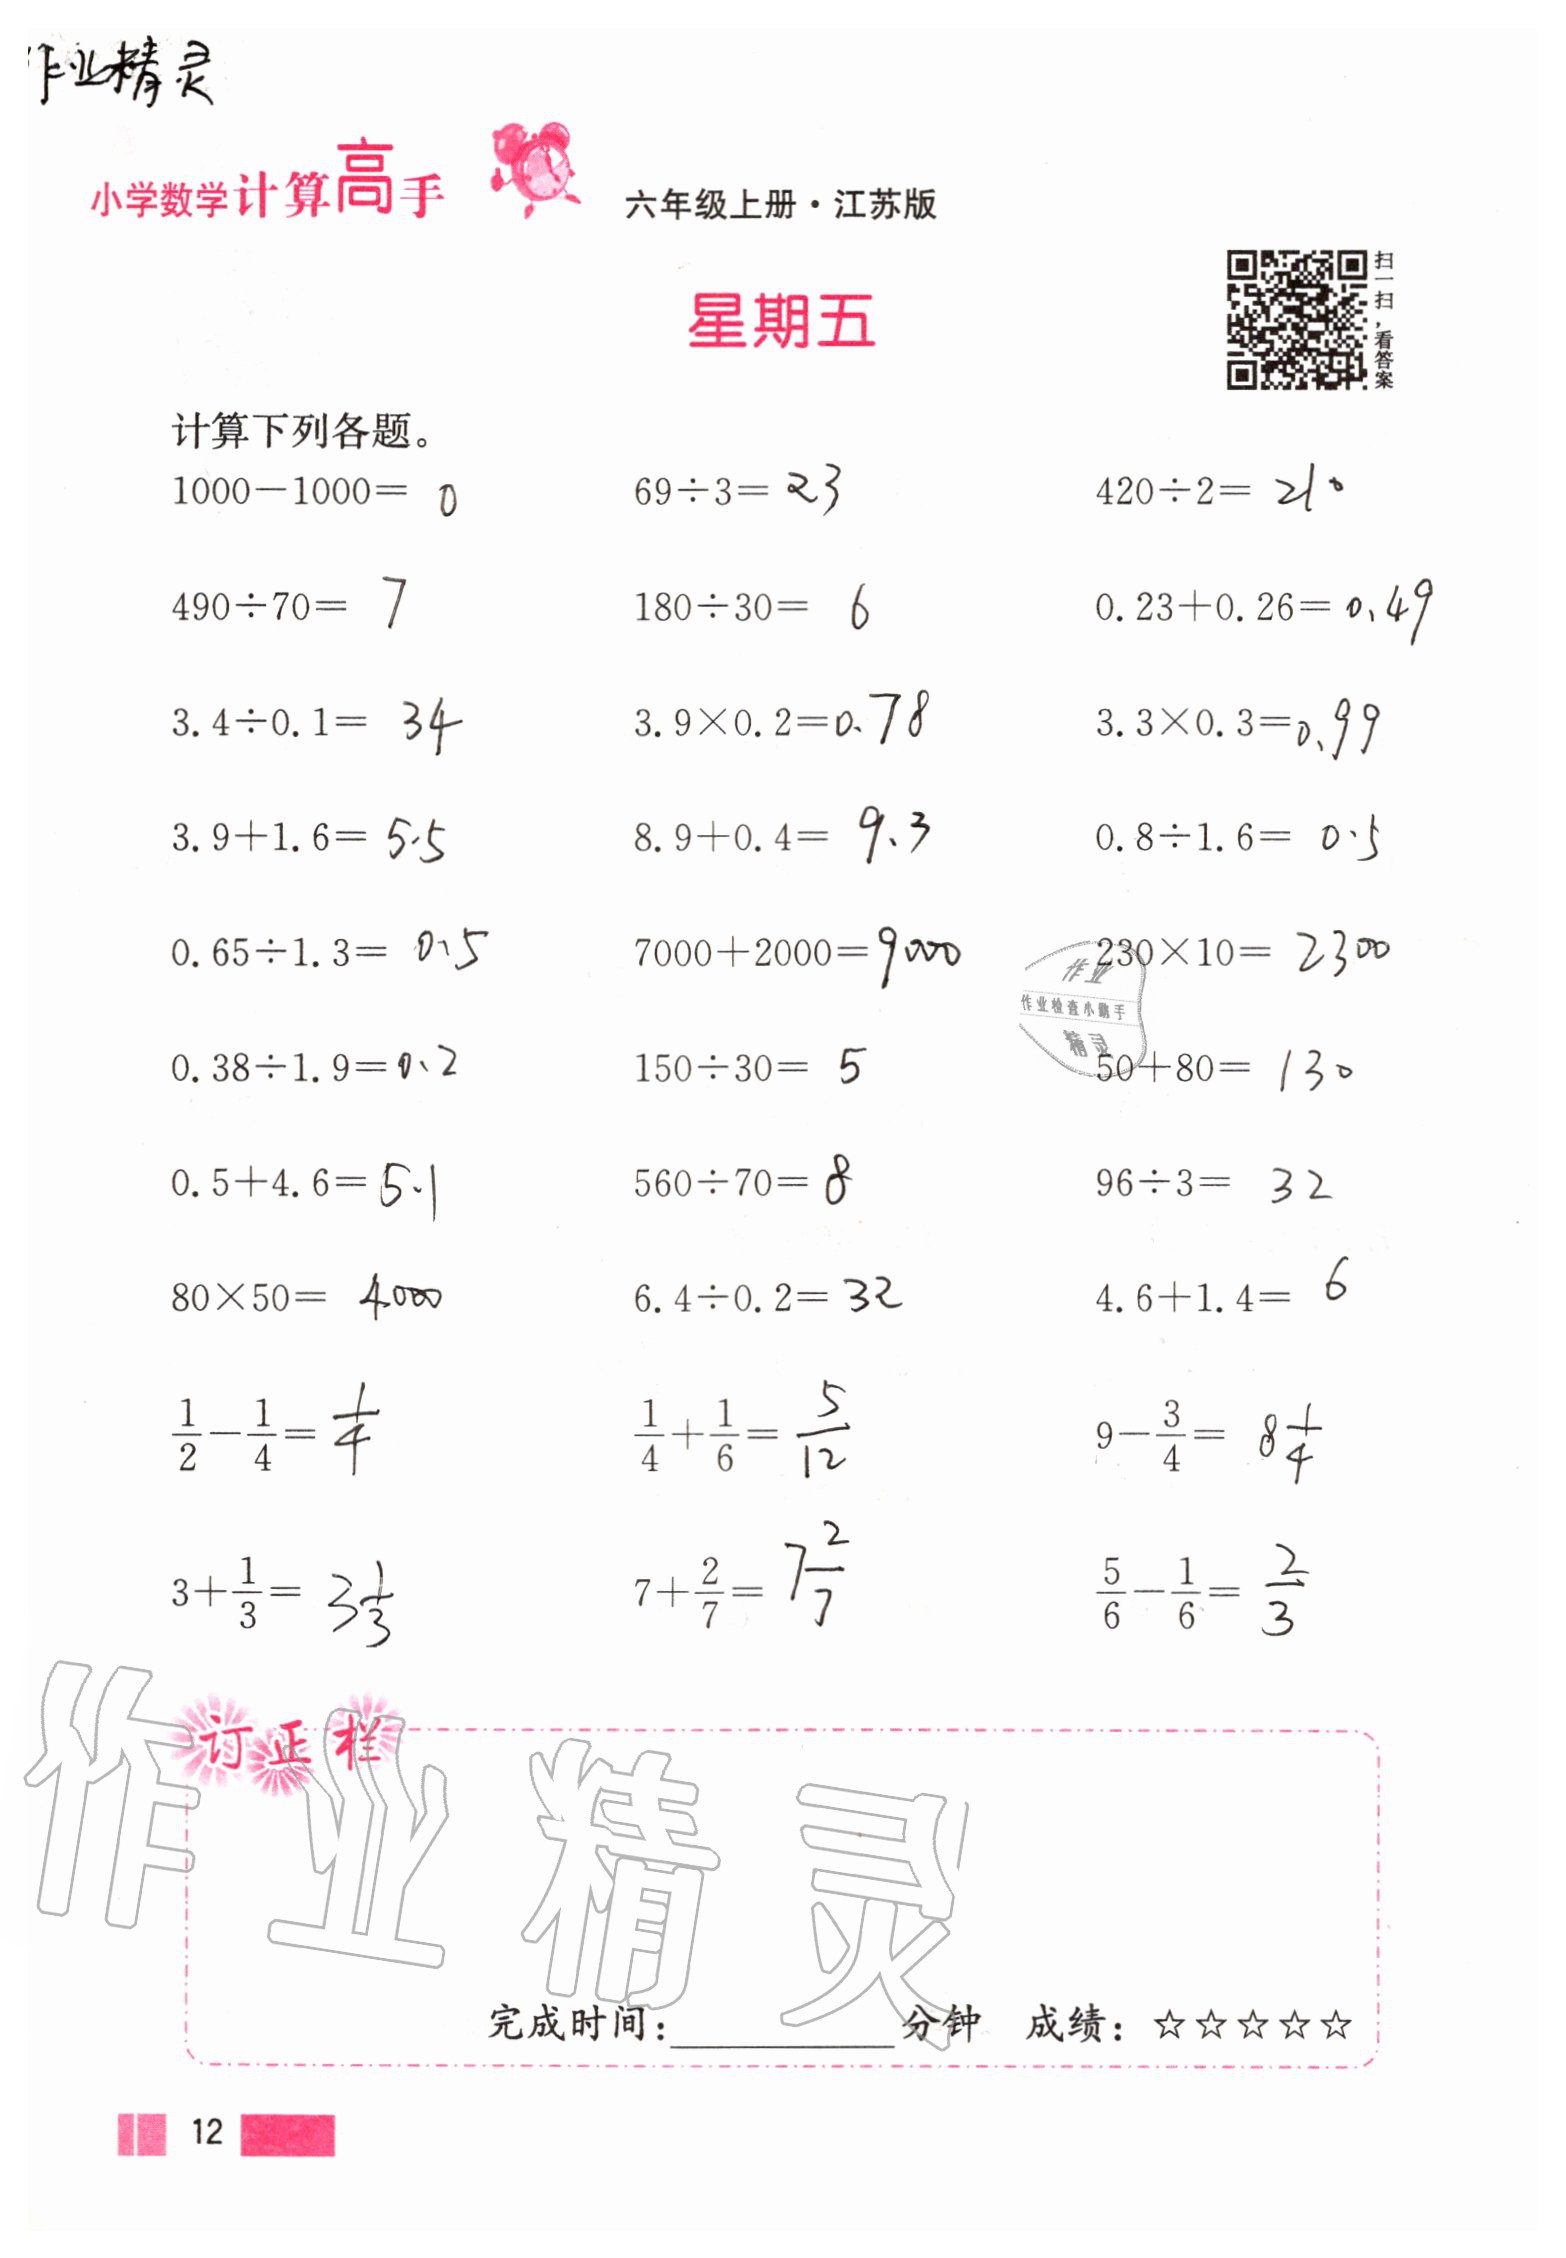 作业精灵
小学数学计算高手 六年级上册·江苏版
扫一扫,看答案
星期五
计算下列各题。
1000-1000= 0 69÷3= 23 420÷2= 210
490÷70= 7 180÷30= 6 0.23+0.26= 0.49
3.4÷0.1= 34 3.9×0.2= 0.78 3.3×0.3= 0.99
3.9+1.6= 5.5 8.9+0.4= 9.3 0.8÷1.6= 0.5
0.65÷1.3= 0.5 7000+2000= 9000 230×10= 2300
作业
作业检查小助手
精灵
0.38÷1.9= 0.2 150÷30= 5 50+80= 130
0.5+4.6= 5.1 560÷70= 8 96÷3= 32
80×50= 4000 6.4÷0.2= 32 4.6+1.4= 6
1/2-1/4= 1/4 1/4+1/6= 5/12 9-3/4= 8 1/4
3+1/3= 3 1/3 7+2/7= 7 2/7 5/6-1/6= 2/3
订正栏
作业精灵
完成时间:__________分钟 成绩:☆☆☆☆☆
12